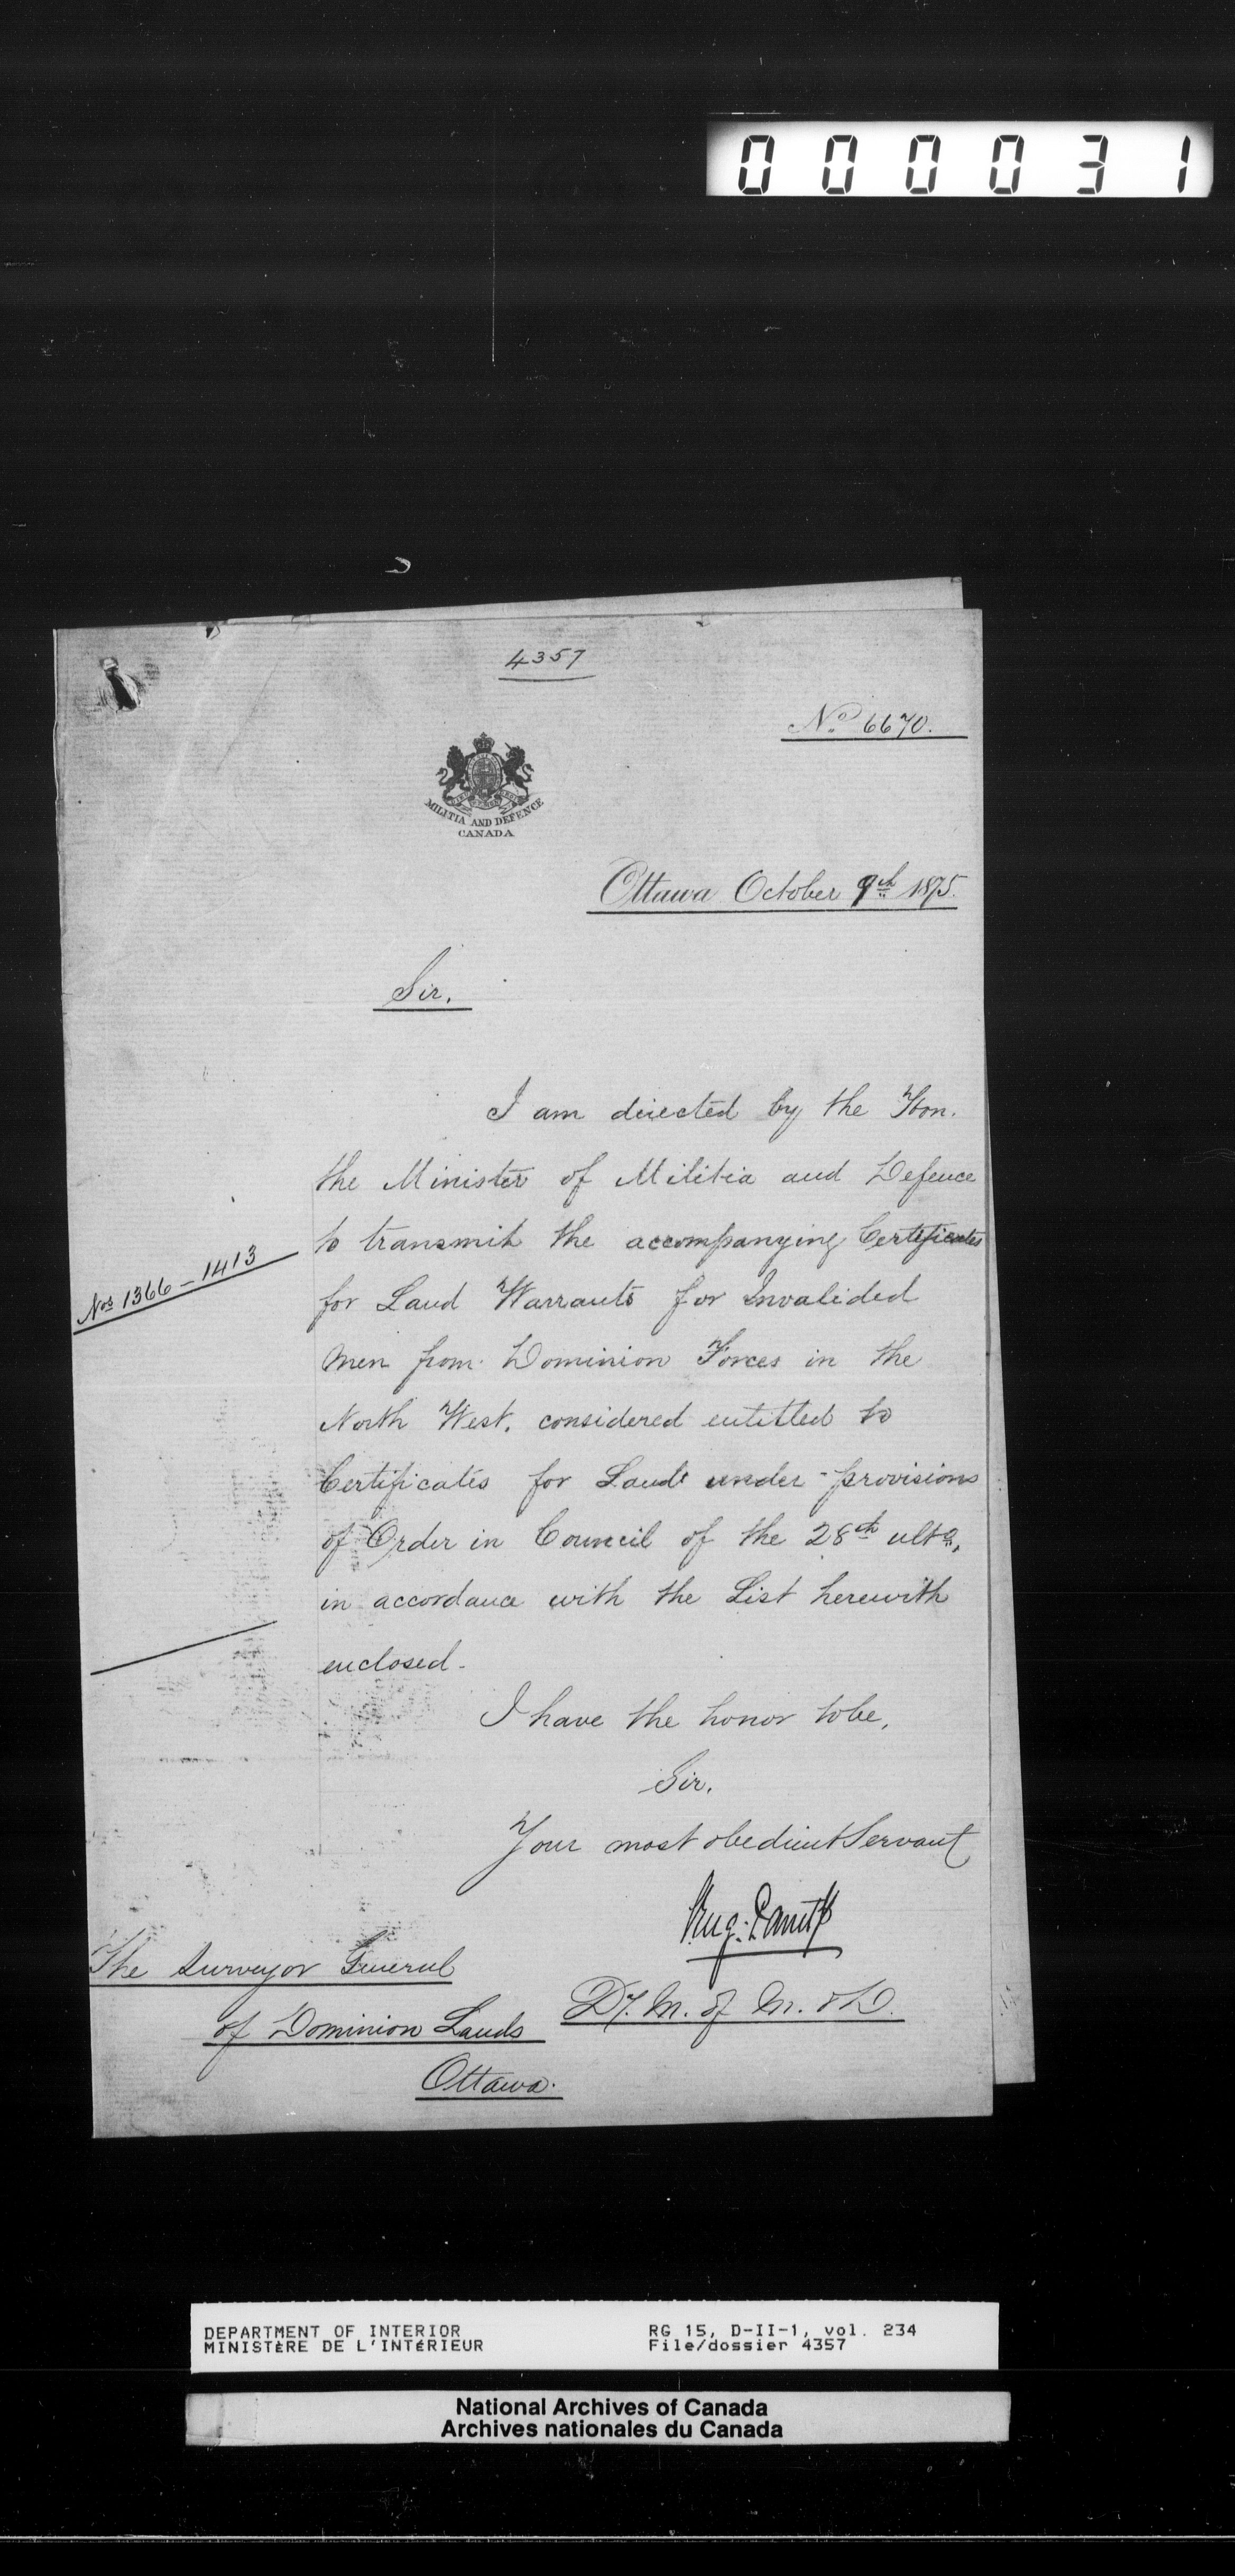 000031
4357
No. 6670.
MILITIA AND DEFENCE
CANADA
Ottawa October 9th 1875.
Sir,
I am directed by the Hon.
the Minister of Militia and Defence
to transmit the accompanying Certificates
Nos 1366 – 1413
for Land Warrants for Invalided
men from Dominion Forces in the
North West, considered entitled to
Certificates for Land under provisions
of Order in Council of the 28th ulto,
in accordance with the List herewith
enclosed.
I have the honor to be,
Sir,
Your most obedient Servant
The Surveyor General
Dy. M. of M. & D.
of Dominion Lands
Ottawa.
DEPARTMENT OF INTERIOR
MINISTÈRE DE L'INTÉRIEUR
RG 15, D-II-1, vol. 234
File/dossier 4357
National Archives of Canada
Archives nationales du Canada